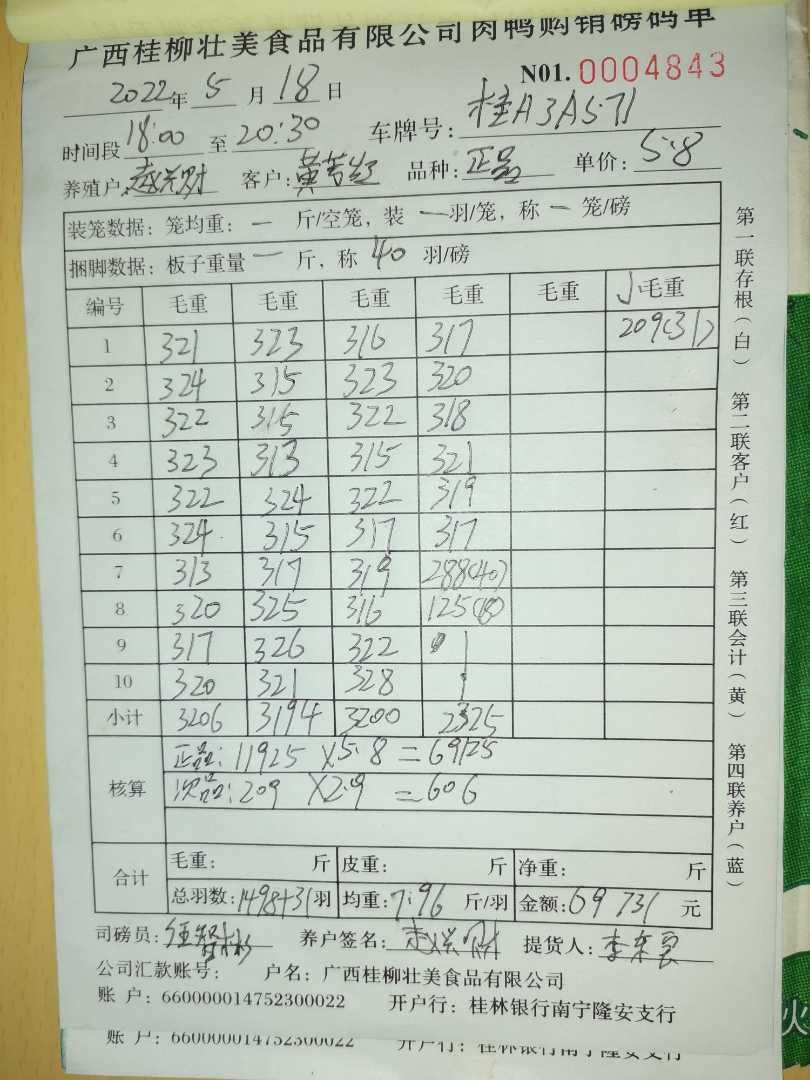 广西桂柳壮美食品有限公司肉鸭购销磅码单
2022年 5 月 18 日 N01. 0004843
时间段 18:00 至 20:30 车牌号: 桂A3A571
养殖户: 客户: 品种: 正品 单价: 5.8
装笼数据: 笼均重: 一 斤/空笼, 装 一 羽/笼, 称 一 笼/磅
捆脚数据: 板子重量 一 斤, 称 40 羽/磅
编号 毛重 毛重 毛重 毛重 毛重 小毛重
1 321 323 316 317 209(31)
2 324 315 323 320
3 322 315 322 318
4 323 313 315 321
5 322 324 322 319
6 324 315 317 317
7 313 317 319 288(40)
8 320 325 316 125(18)
9 317 326 322
10 320 321 328
小计 3206 3194 3200 2325
核算 正品: 11925 ×5.8 = 69125
次品: 209 ×2.9 = 606
合计 毛重: 斤 皮重: 斤 净重: 斤
总羽数: 1498+31 羽 均重: 7.96 斤/羽 金额: 69731 元
司磅员: 养户签名: 提货人:
公司汇款账号: 户名: 广西桂柳壮美食品有限公司
账 户: 660000014752300022 开户行: 桂林银行南宁隆安支行
账 户: 660000014752300022 开户行: 桂林银行南宁隆安支行
第一联存根(白) 第二联客户(红) 第三联会计(黄) 第四联养户(蓝)
火